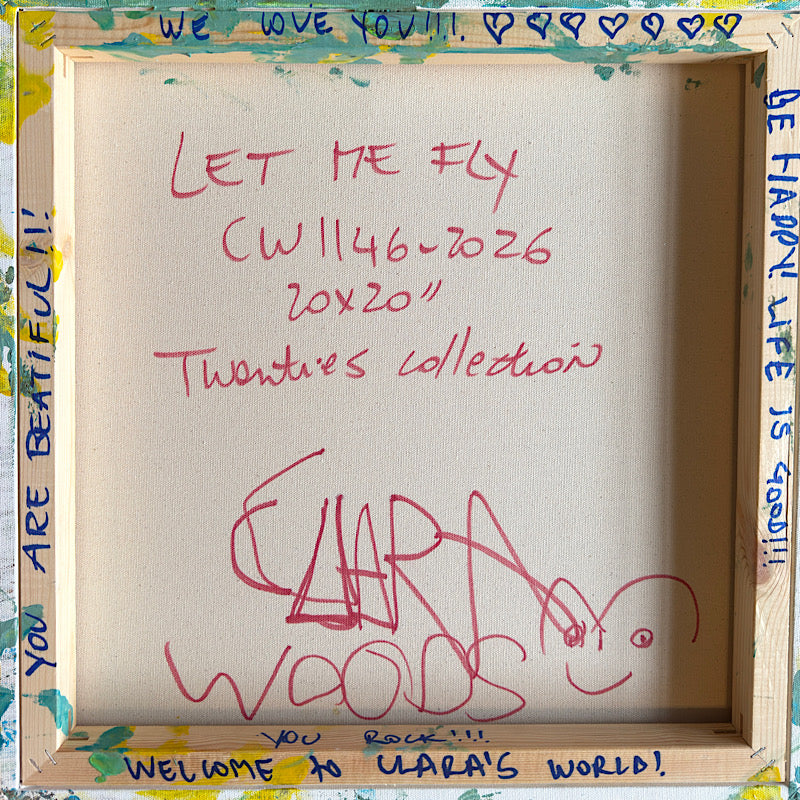 WE LOVE YOU!!!!
LET ME FLY
CW1146-2026
20x20"
Twenties collection
CLARA
WOODS
YOU ARE BEATIFUL!!!
BE HAPPY! LIFE IS GOOD!!!
YOU ROCK!!!
WELCOME to CLARA'S WORLD!